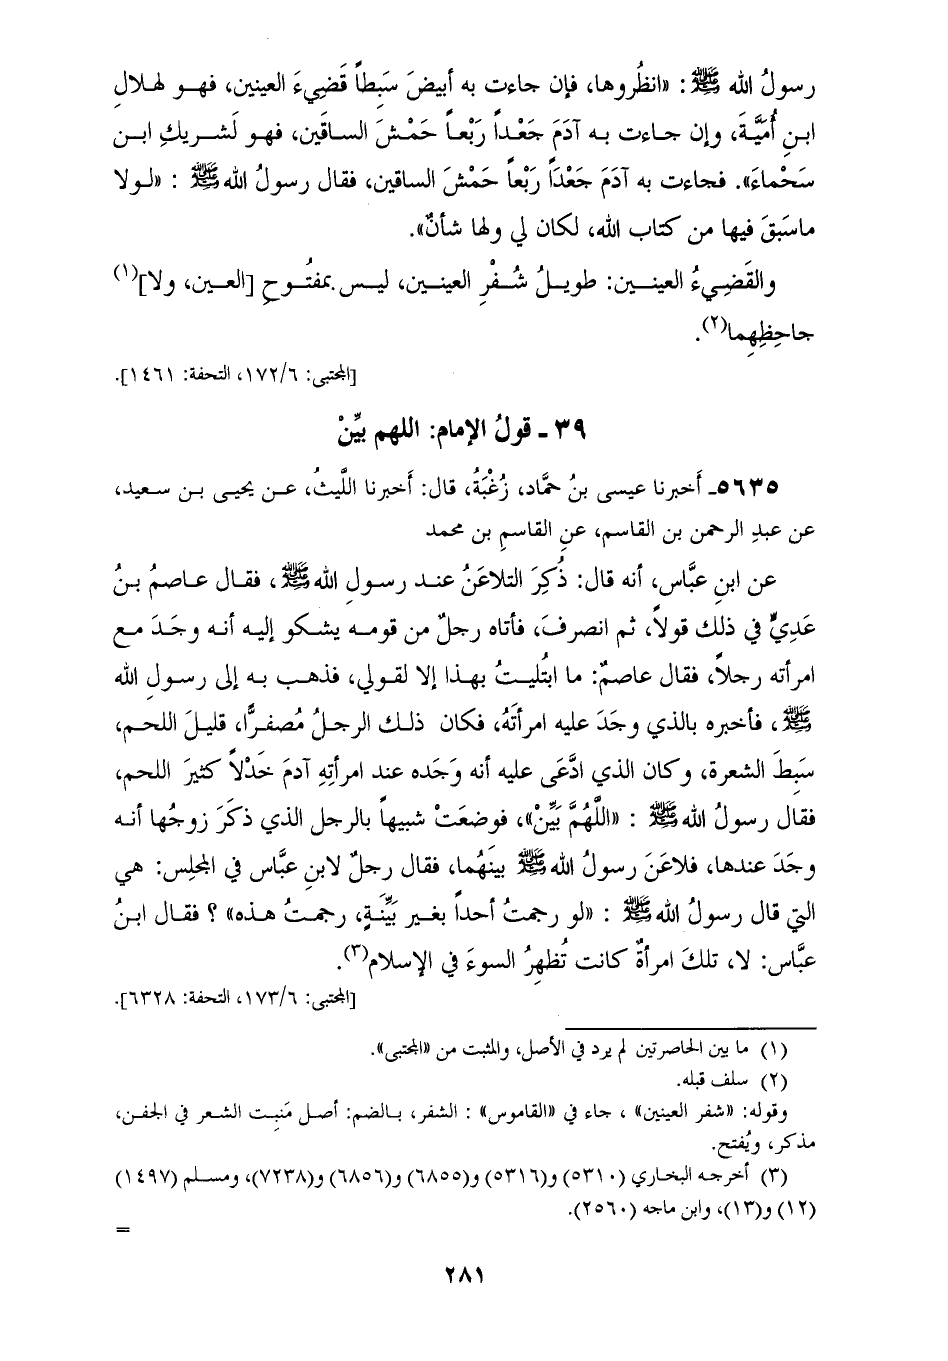 رسولُ الله ﷺ : «انظُروها، فإن جاءت به أبيضَ سَبِطاً قَضِيءَ العينين، فهـو لهلالِ
ابـنِ أُمَيَّـةَ، وإن جـاءت بـه آدَمَ جَعْـداً رَبْعـاً حَمْـشَ الساقَين، فهـو لَشـريكِ ابـن
سَحْماءَ». فجاءت به آدَمَ جَعْدَاً رَبْعاً حَمْشَ الساقين، فقال رسولُ اللهﷺ : «لـولا
ماسَبَقَ فيها من كتاب الله، لكان لي ولها شأنٌ».
والقَضِـيءُ العينـين: طويـلُ شُـفْرِ العينـين، ليـس بمفتُـوحِ [العـين، ولا](١)
جاحِظِهِما(٢).
[المجتبى: ١٧٢/٦، التحفة: ١٤٦١].
٣٩ ـ قولُ الإمام: اللهم بيِّنْ
٥٦٣٥ـ أَخبرنا عيسى بنُ حمَّاد، زُغْبَةُ، قال: أَخبرنا اللَّيثُ، عـن يحيـى بـن سـعيد،
عن عبدِ الرحمن بن القاسم، عنِ القاسمِ بن محمد
عن ابنِ عبَّاس، أنه قال: ذُكِرَ التلاعَنُ عنـد رسـولِ اللهﷺ ، فقـال عـاصمُ بـنُ
عَدِيٍّ في ذلك قولاً، ثم انصرفَ، فأتاه رجلٌ من قومـه يشـكو إليـه أنـه وجَـدَ مـع
امرأته رجلاً، فقال عاصمٌ: ما ابتُليـتُ بهـذا إلا لقولي، فذهـب بـه إلى رسـولِ الله
ﷺ ، فأخبره بالذي وجَدَ عليه امرأتَهُ، فكان ذلـك الرجـلُ مُصفـرًّا، قليـلَ اللحـم،
سَبِطَ الشعرة، وكان الذي ادَّعَى عليه أنه وَجَده عند امرأتِهِ آدمَ خَدْلاً كثيرَ اللحم،
فقال رسولُ اللهﷺ : «اللَّهُمَّ بَيِّنْ»، فوضعَتْ شبيهاً بالرجل الذي ذكَرَ زوجُها أنـه
وجَدَ عندها، فلاعَنَ رسولُ اللهﷺ بينَهُما، فقال رجلٌ لابنِ عبَّاس في المجلِس: هي
التي قال رسولُ اللهﷺ : «لو رجمتُ أحداً بغير بَيِّنَةٍ، رجمتُ هـذه» ؟ فقـال ابـنُ
عبَّاس: لا، تلكَ امرأةٌ كانت تُظهِرُ السوءَ في الإسلام(٣).
[المجتبى: ١٧٣/٦، التحفة: ٦٣٢٨].
(١) ما بين الحاصرتين لم يرد في الأصل، والمثبت من «المجتبى».
(٢) سلف قبله.
وقوله: «شفر العينين» ، جاء في «القاموس» : الشفر، بـالضم: أصـل مَنبِـت الشعر في الجفن،
مذكر، ويُفتح.
(٣) أخرجـه البخاري (٥٣١٠) و(٥٣١٦) و(٦٨٥٥) و(٦٨٥٦) و(٧٢٣٨)، ومسـلم (١٤٩٧)
(١٢) و(١٣)، وابن ماجه (٢٥٦٠).
=
٢٨١